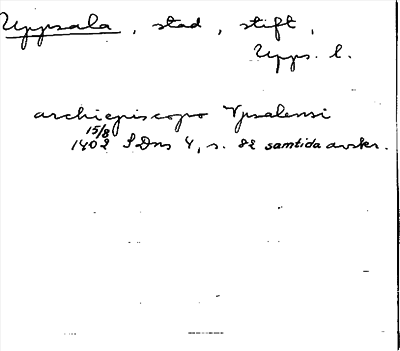 Uppsala, stad, stift,
Upps. l.
archiepiscopo Vpsalensi
15/8
1402 SDns 4, s. 82 samtida avskr.